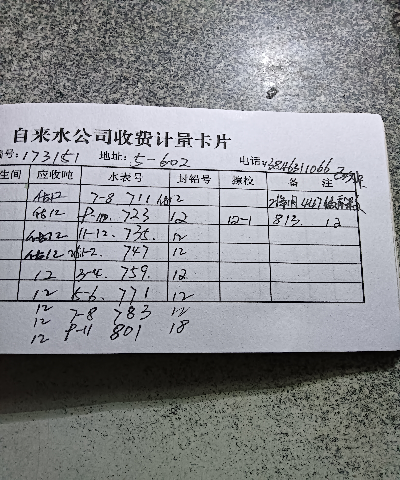 自来水公司收费计量卡片
编号:173151 地址:5-602 电话:13846311066
生间 应收吨 水表号 封铅号 掀校 备注
12 7-8 711 2
12 723 12 12-1 813. 12
12 11-12. 735. 12
12 747 12
12 3-4. 759. 12
12 5-6. 771 12
12 7-8 783 12
12 9-11 801 18
12